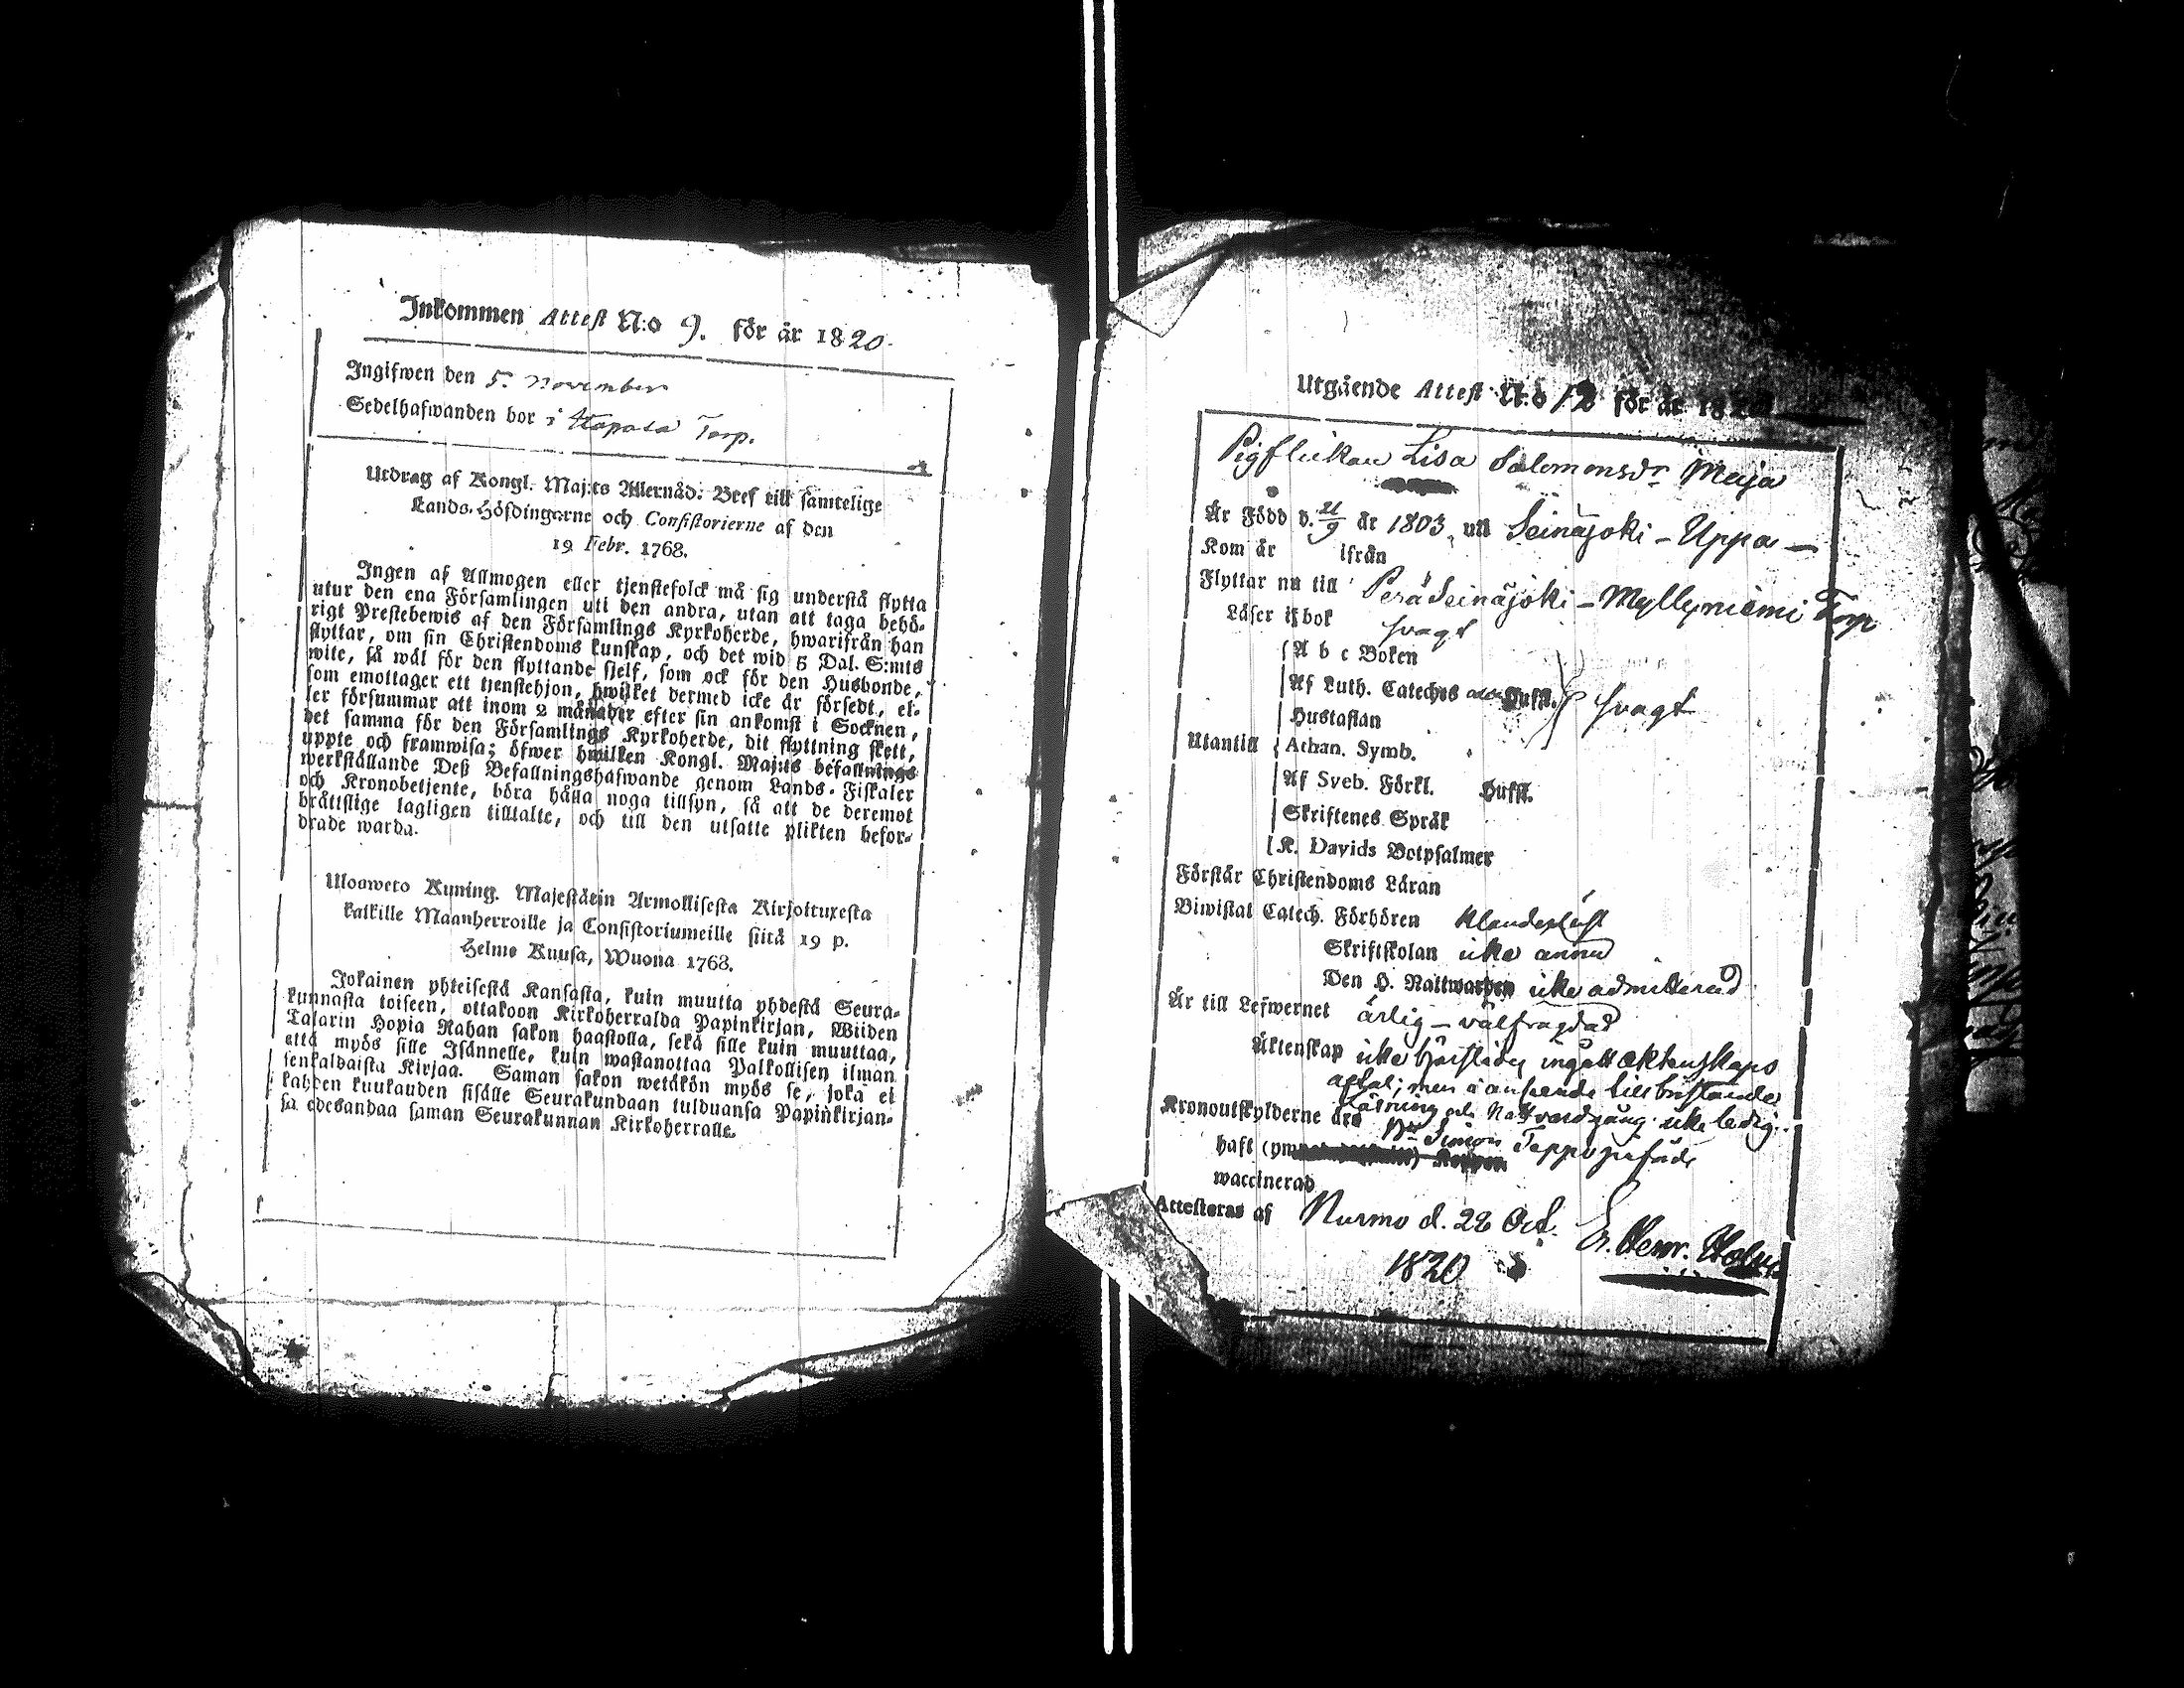 Inkommen Attest N:o 9. för år 1820.
Ingifwen den 5. November
Sedelhafwanden bor i Haapasa Torp.
Utdrag af Kongl. Maj:ts Allernåd. Bref till samtelige
Lands-Höfdingarne och Consistorierne af den
19 Febr. 1768.
Ingen af Allmogen eller tjenstefolck må sig understå flytta
utur den ena Församlingen uti den andra, utan att taga behö-
rigt Prestebewis af den Församlings Kyrkoherde, hwarifrån han
flyttar, om sin Christendoms kunskap, och det wid 5 Dal. S:mts
wite, så wäl för den flyttande sjelf, som ock för den Husbonde,
som emottager ett tjenstehjon, hwilket dermed icke är försedt, el-
ler försummar att inom 2 månader efter sin ankomst i Socknen,
det samma för den Församlings Kyrkoherde, dit flyttning skett,
uppte och framwisa; öfwer hwilken Kongl. Maj:ts befallnings
werkställande Deß Befallningshafwande genom Lands-Fiskaler
och Kronobetjente, böra hålla noga tillsyn, så att de deremot
bråttslige lagligen tilltalte, och till den utsatte plikten befor-
drade warda.
Uloosweto Kuning. Majestätin Armollisesta Kirjoituxesta
kaikille Maanherroille ja Consistoriumeille siitä 19 p.
Helme Kuusa, Wuona 1768.
Jokainen yhteisestä Kansasta, kuin muutta yhdestä Seura-
kunnasta toiseen, ottakoon Kirkoherralda Papinkirjan, Wiiden
Talarin Hopia Rahan sakon haastolla, sekä sille kuin muuttaa,
että myös sille Isännelle, kuin wastanottaa Palkollisen ilman
senkaldaista Kirjaa. Saman sakon wetäkön myös se, joka ei
kahden kuukauden sisälle Seurakundaan tulduansa Papinkirjan-
sa edesandaa saman Seurakunnan Kirkoherralle.
Utgående Attest N:o 12 för år 18
Pigflickan Lisa Salomonsdr Maja
Är Född d. 21/9 år 1803, uti Seinäjoki - Uppa -
Kom år ifrån
Flyttar nu till Perä Seinäjoki - Myllyniemi Torp
Läser i bok svagt
A b c Boken
Af Luth. Cateches Hufst. svagt
Hustaflan
Utantill Athan. Symb.
Af Sveb. Förkl. Hufst.
Skriftenes Språk
K. Davids Botpsalmer
Förstår Christendoms Läran
Biwistat Catech. Förhören klanderlöst
Skriftskolan icke ännu
Den H. Nattwarden icke admitterad
Är till Lefwernet ärlig - välfrägdad
Äktenskap icke härstädes ingått äktenskaps
aftal; men i anseende till bristande
Läsning och Nattvardsgång icke ledig.
Kronoutskylderne äro
haft
waccinerad
Attesteras af Nurmo d. 28 Oct.
1820